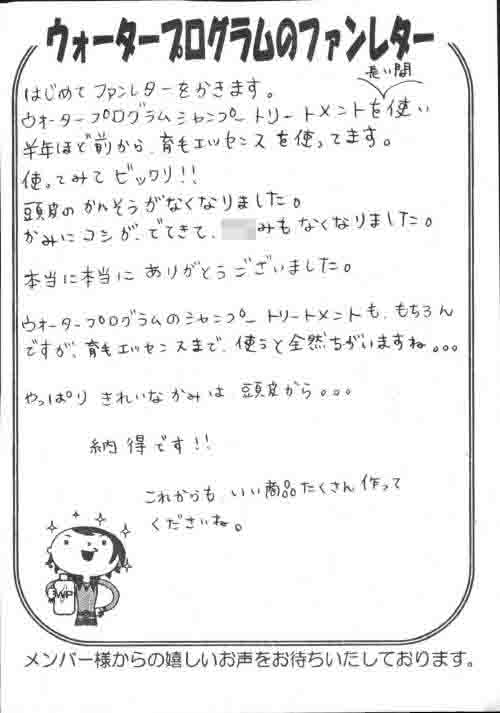 ウォータープログラムのファンレター
はじめて ファンレターをかきます。
長い間
ウォータープログラムシャンプー トリートメントを使い
半年ほど前から、育毛エッセンスを使ってます。
使ってみて ビックリ!!
頭皮の かんそうがなくなりました。
かみに コシが、でてきて、みも なくなりました。
本当に本当に ありがとうございました。
ウォータープログラムのシャンプー トリートメントも、もちろん
ですが、育毛エッセンスまで、使うと全然ちがいますね。。。
やっぱり きれいな かみは 頭皮から。。。
納得です!!
これからも いい商品たくさん作って
くださいね。
WP
メンバー様からの嬉しいお声をお待ちいたしております。